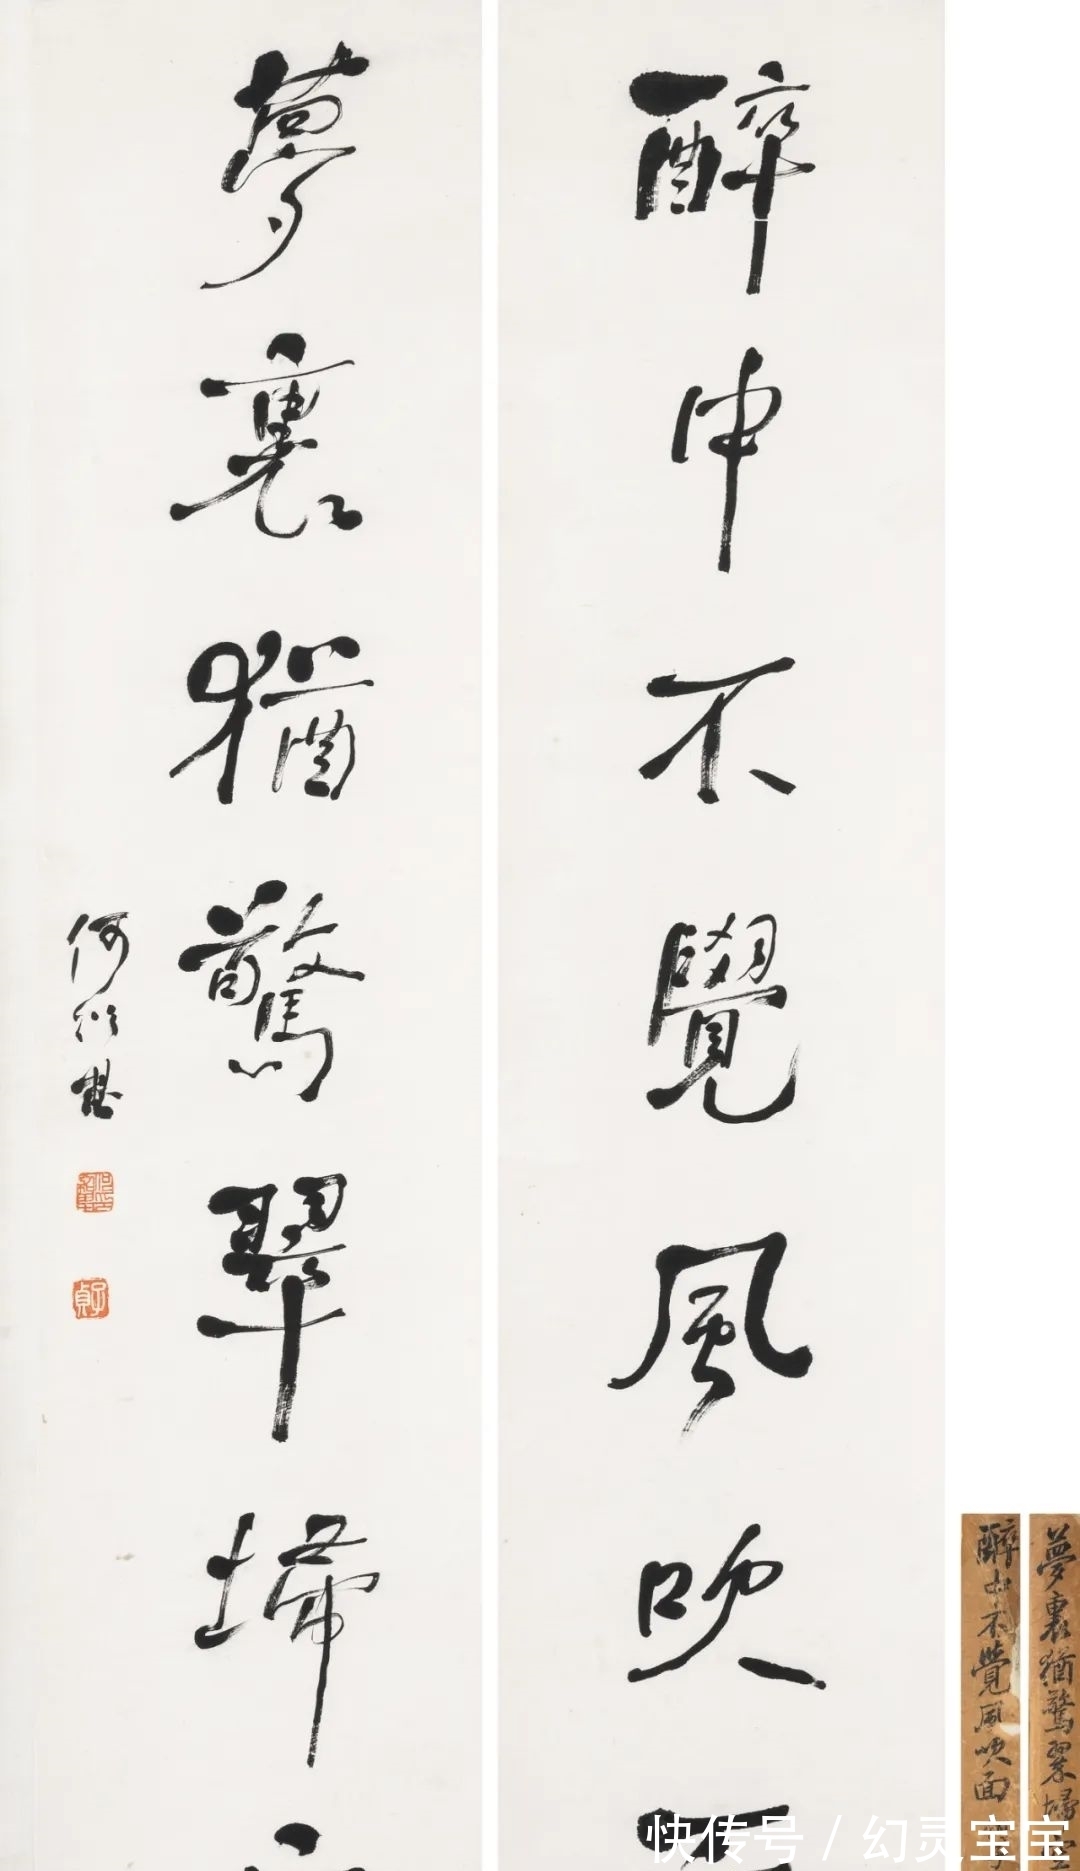 醉中不覺風吹
夢裏猶驚翠埽
何紹基
子貞
醉中不覺風吹面
夢裏猶驚翠埽空
快传号 / 幻灵宝宝